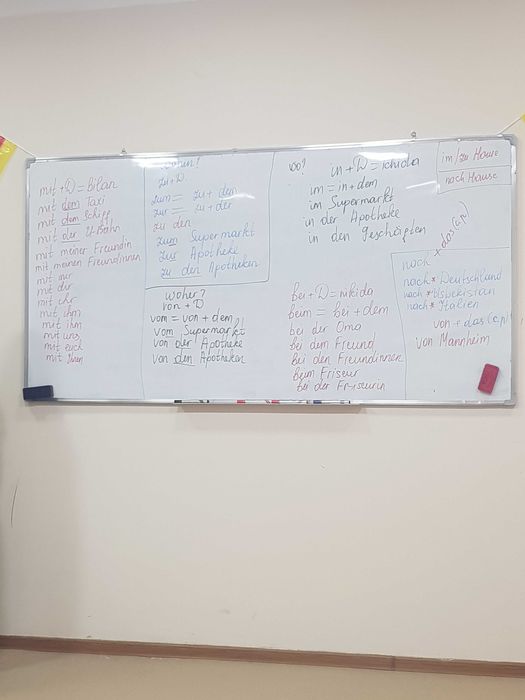 mit + D = Bilan
mit dem Taxi
mit dem Schiff
mit der U-Bahn
mit meiner Freundin
mit meinen Freundinnen
mit mir
mit dir
mit ihr
mit ihm
mit ihm
mit uns
mit euch
mit Ihnen
wohin?
zu + D
zum = zu + dem
zur = zu + der
zu den
zum Supermarkt
zur Apotheke
zu den Apotheken
woher?
von + D
vom = von + dem
vom Supermarkt
von der Apotheke
von den Apotheken
wo? in + D = ichida
im = in + dem
im Supermarkt
in der Apotheke
in den Geschäften
bei + D = nikida
beim = bei + dem
bei der Oma
bei dem Freund
bei den Freundinnen
beim Friseur
bei der Friseurin
im / zu Hause
nach Hause
nach x das (c, n)
nach * Deutschland
nach * Usbekistan
nach * Italien
von + das (c, n)
von Mannheim